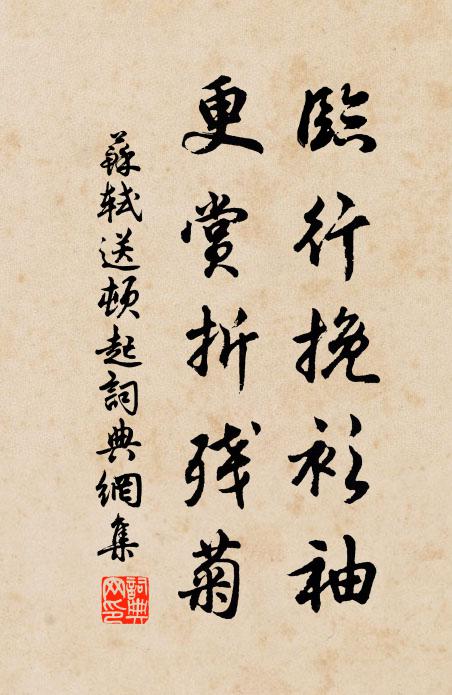 臨行挽衫袖
更賞折残菊
蘇軾送頓起詞典網集
詞典网印